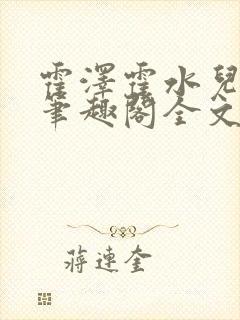 霍澤霍水兒
筆趣閣全文
蔣連奎